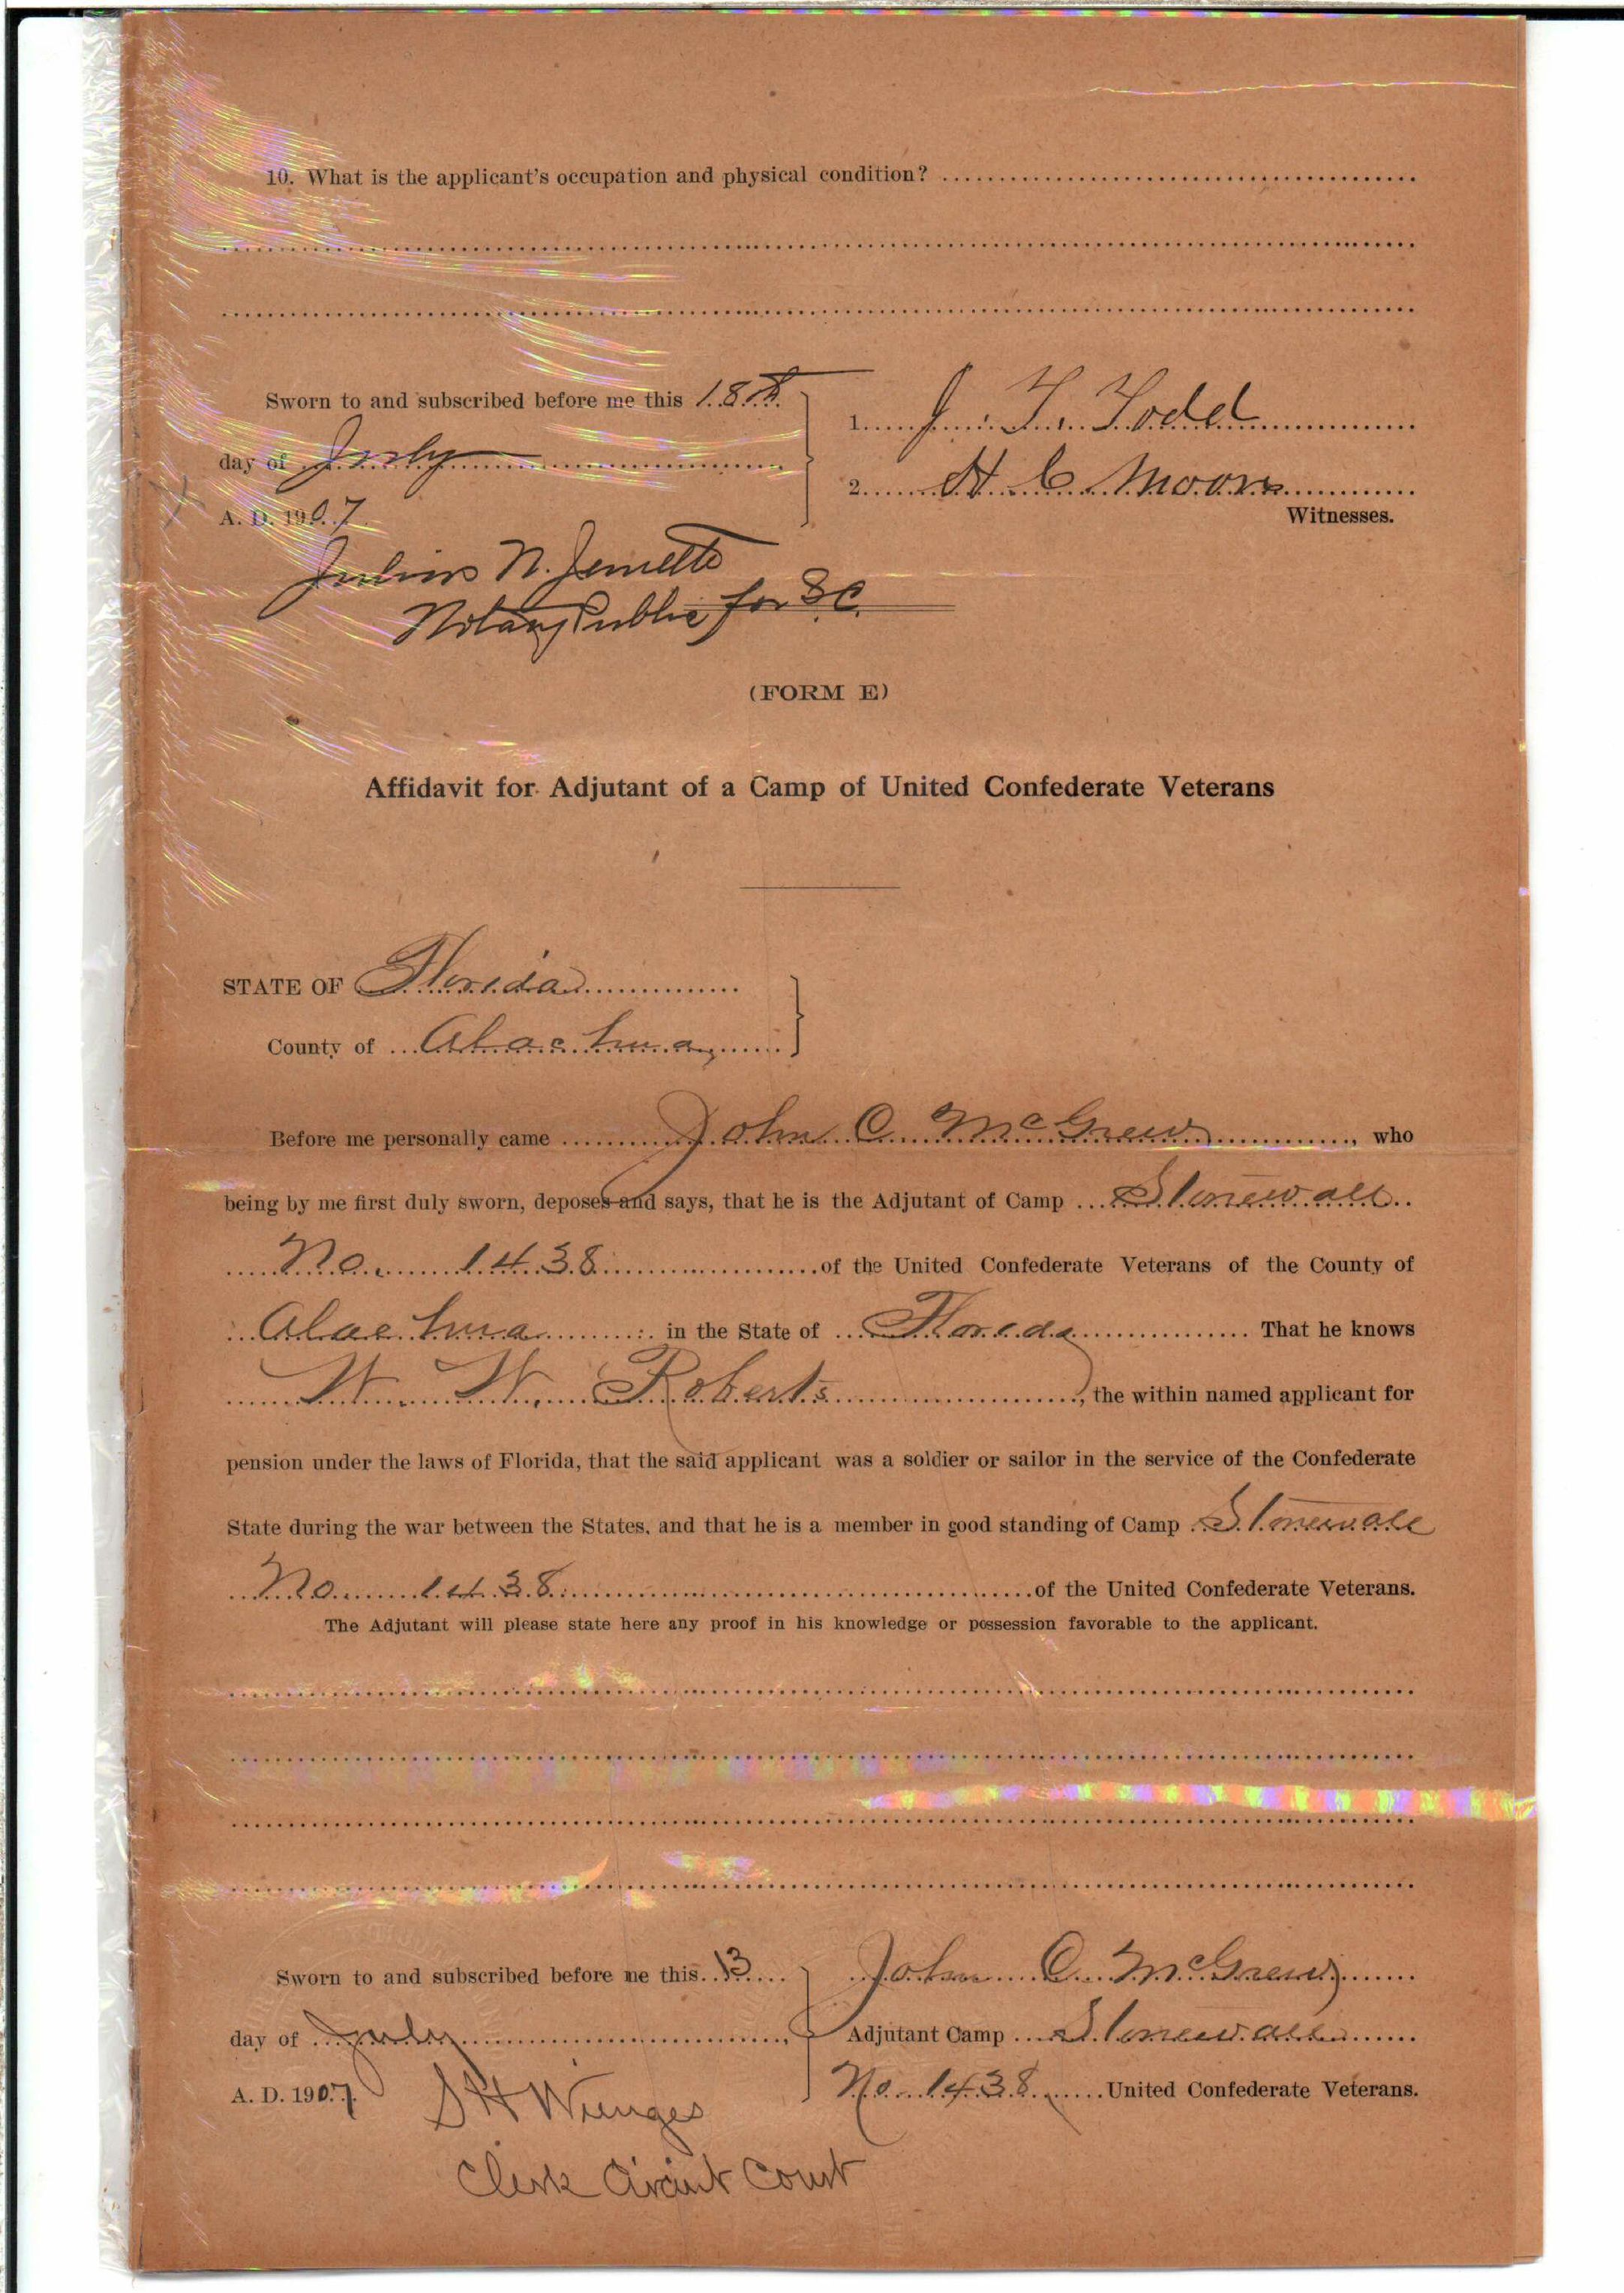 10. What is the applicant's occupation and physical condition?
Sworn to and subscribed before me this 18th
day of July
A. D. 1907
1. J. T. Todd
2. H. C. Moore
Witnesses.
Julius N.
Notary Public for S.C.
(FORM E)
Affidavit for Adjutant of a Camp of United Confederate Veterans
STATE OF Florida
County of Alachua
Before me personally came John C. McGrew, who
being by me first duly sworn, deposes and says, that he is the Adjutant of Camp Stonewall
No. 1438 of the United Confederate Veterans of the County of
Alachua in the State of Florida That he knows
W. W. Roberts, the within named applicant for
pension under the laws of Florida, that the said applicant was a soldier or sailor in the service of the Confederate
State during the war between the States, and that he is a member in good standing of Camp Stonewall
No. 1438 of the United Confederate Veterans.
The Adjutant will please state here any proof in his knowledge or possession favorable to the applicant.
Sworn to and subscribed before me this 13
day of July
A. D. 1907
John C. McGrew
Adjutant Camp Stonewall
No. 1438 United Confederate Veterans.
S H Wienges
Clerk Circuit Court